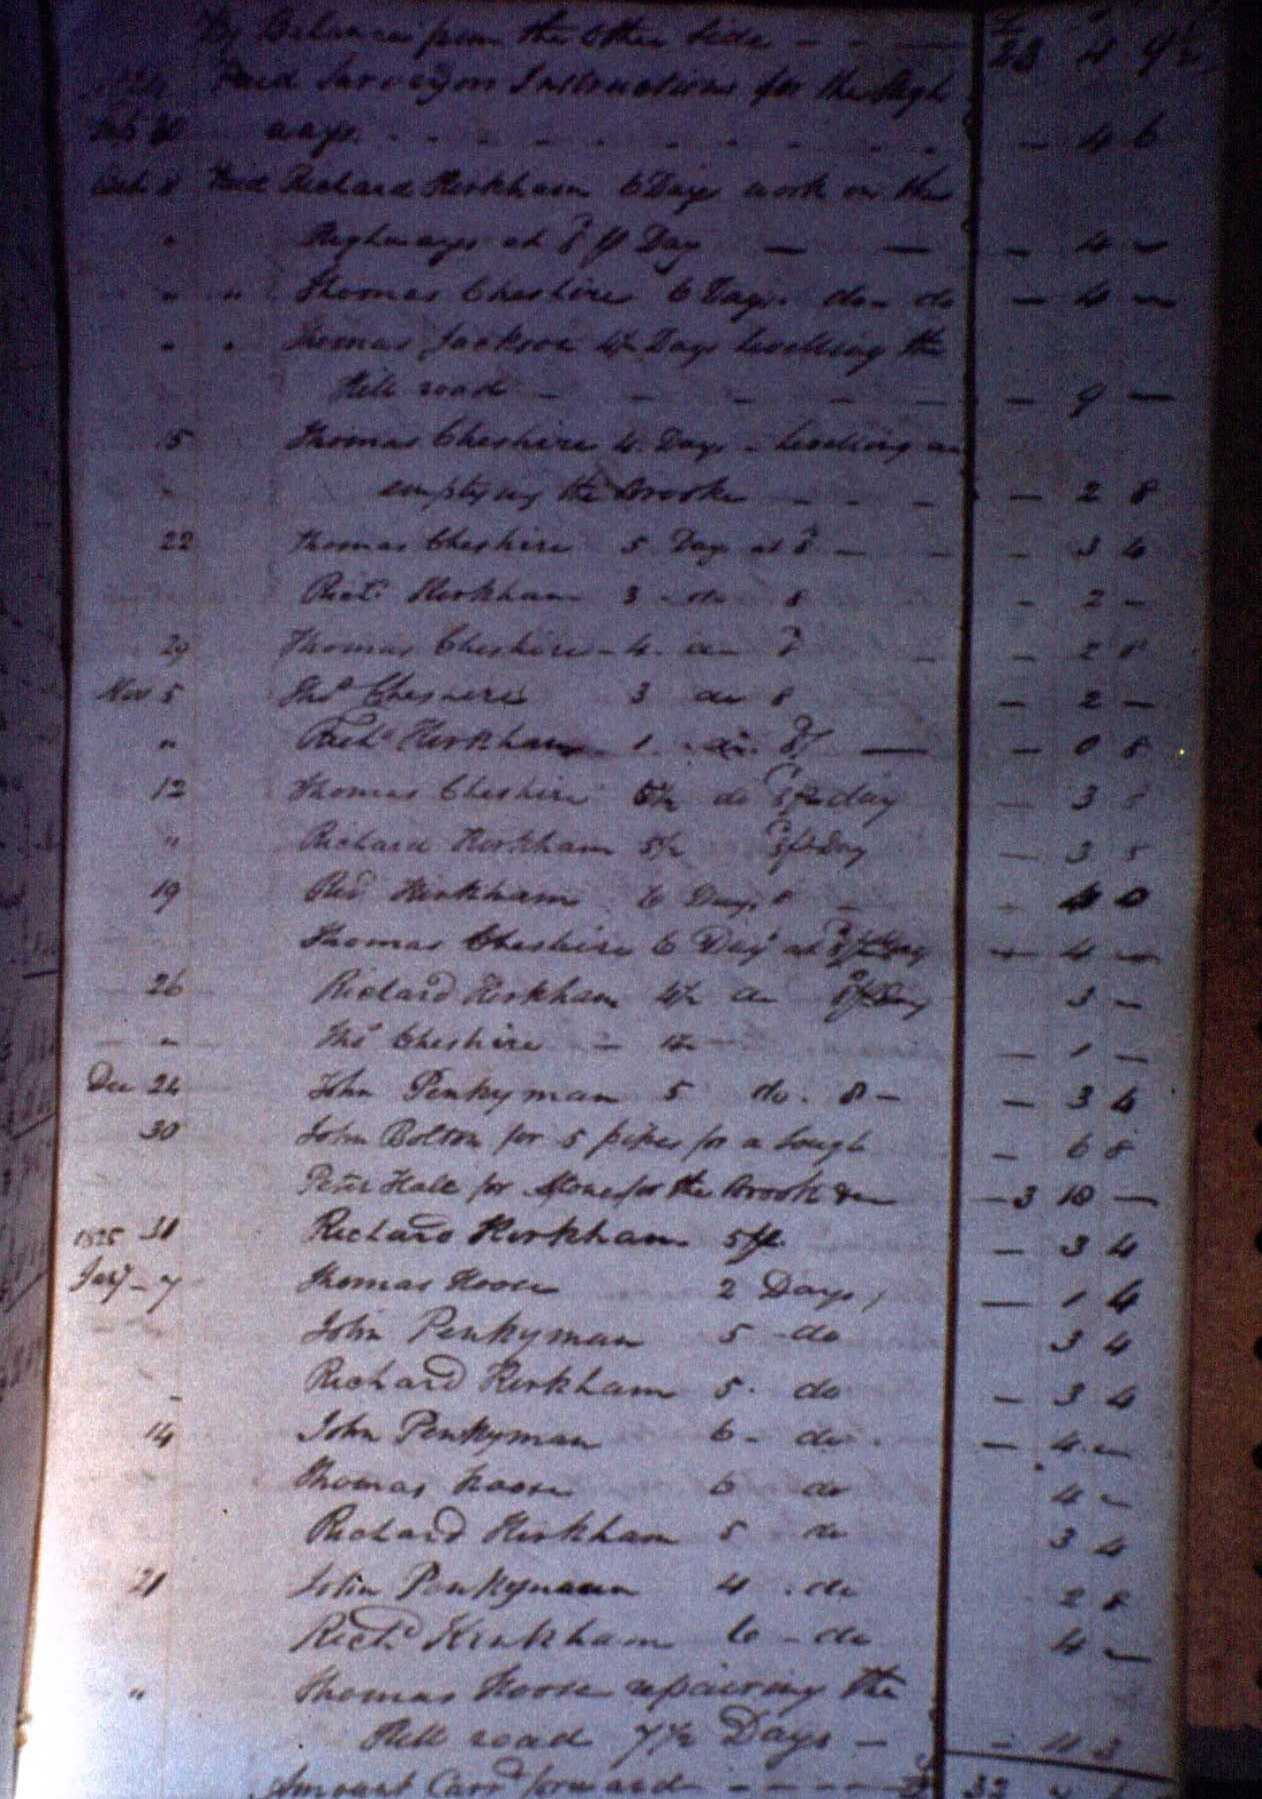 By Balance from the Other Side - - — 23 4 9½
1824 Paid Surveyors Instructions for the High
ways - - - - - - - - - 4 6
Oct 8 Paid Richard Kirkham 6 Days work on the
" Highways at 8 pr Day — — - 4 -
" " Thomas Cheshire 6 Days do - do - 4 -
" " Thomas Jackson 4½ Days levelling the
Hill road - - - - - - 9 -
15 Thomas Cheshire 4 Days - levelling an
" emptying the Brooke - - - - 2 8
22 Thomas Cheshire 5 Days at 8 - - - 3 4
Richd Kirkham 3 - do 8 - 2 -
29 Thomas Cheshire - 4 - do - 8 - - 2 8
Nov 5 Thos Cheshire 3 do 8 - 2 -
" Richd Kirkham 1 - do. 8 — - 0 8
12 Thomas Cheshire 5½ do 8 pr day - 3 8
" Richard Kirkham 5½ 8 pr Day - 3 8
19 Ricd Kirkham 6 Days 8 - - 4 0
Thomas Cheshire 6 Days at 8 pr Day - 4 -
26 Richard Kirkham 4½ do 8 pr Day 3 -
" Thos Cheshire - 1½ - - 1 -
Dec 24 John Penkyman 5 do. 8 - - 3 4
30 John Bolton for 5 pipes for a Sough - 6 8
Peter Hale for Stone for the Brook - 3 10 -
1825 31 Richard Kirkham 5 - 3 4
Jany - 7 Thomas Hoose 2 Days - 1 4
John Penkyman 5 - do 3 4
" Richard Kirkham 5 - do - 3 4
14 John Penkyman 6 - do - - 4 -
Thomas Hoose 6 do 4 -
Richard Kirkham 5 do 3 4
21 John Penkyman 4 - do 2 8
Richd Kirkham 6 - do 4 -
" Thomas Hoose repairing the
Hill road 7½ Days - - 11 3
Amount Carrd forward - - - - 32